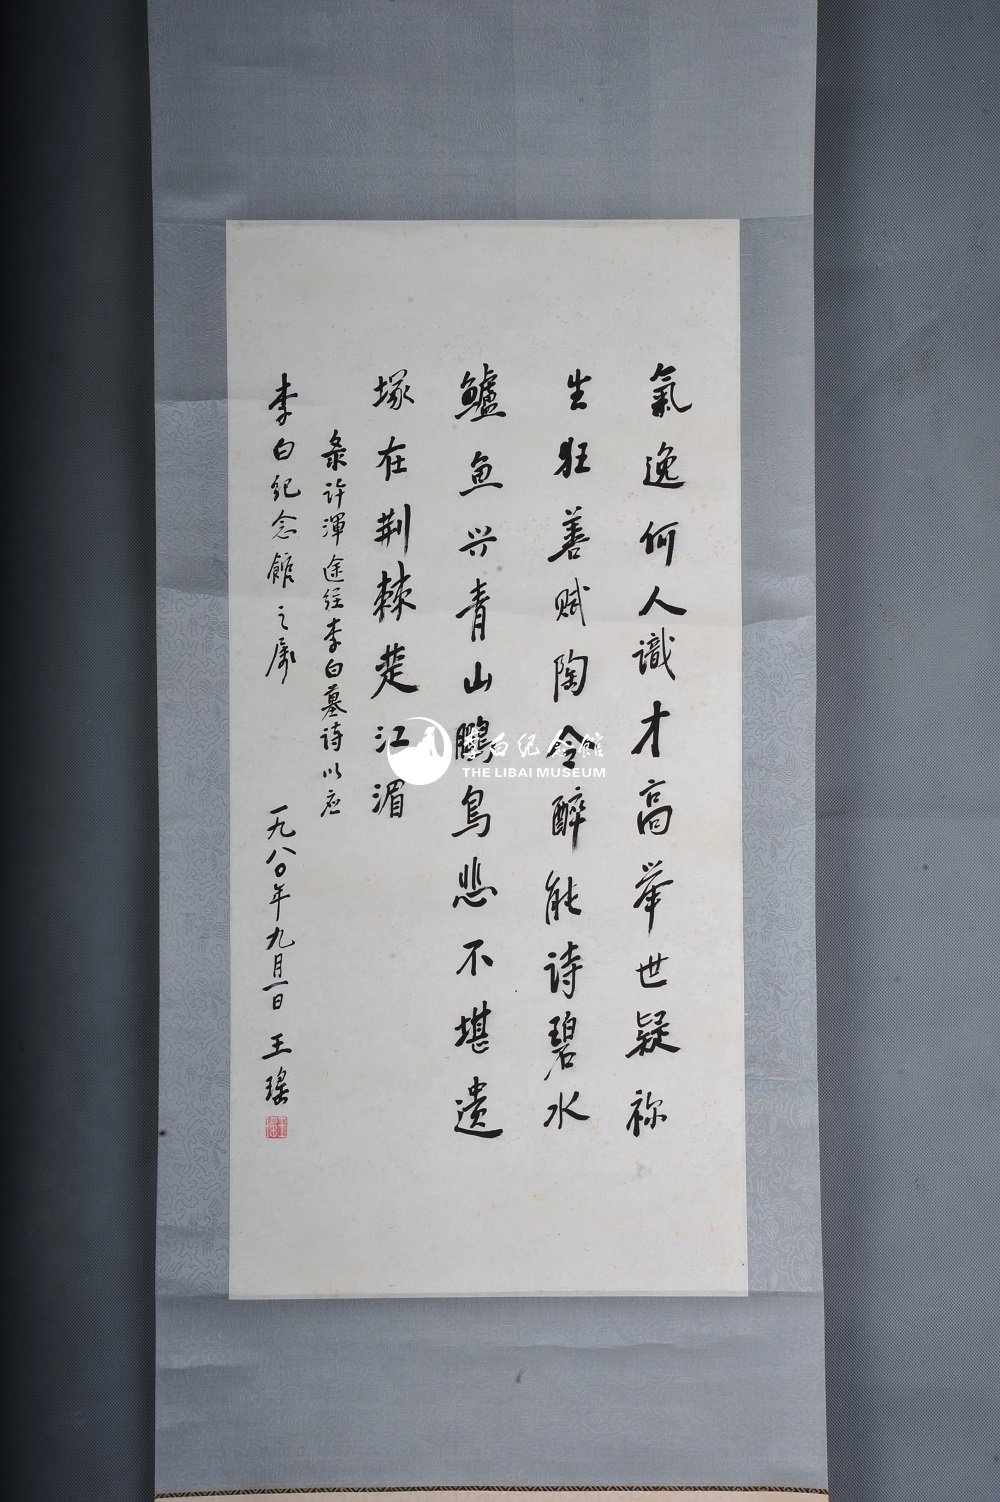 氣逸何人識才高举世疑祢
生狂善赋陶令醉能诗碧水
鱸鱼兴青山鵩鳥悲不堪遗
塚在荆棘楚江湄
录许渾途经李白墓诗以应
李白纪念館之属 一九八〇年九月一日 王瑤
李白纪念馆
THE LIBAI MUSEUM